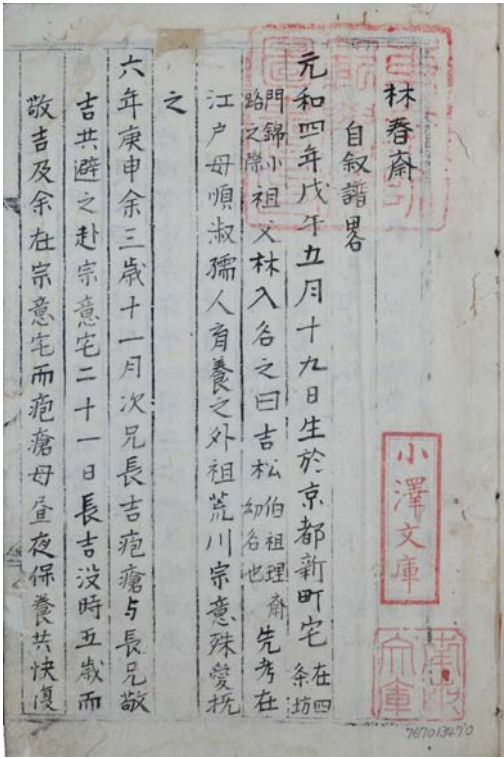 林春齋
自叙譜畧
元和四年戊午五月十九日生於京都新町宅在四条坊
門錦小路之際祖父林入名之曰吉松伯祖理齋幼名也先考在
江戸母順淑孺人育養之外祖荒川宗意殊愛抚
之
六年庚申余三歳十一月次兄長吉疱瘡与長兄敬
吉共避之赴宗意宅二十一日長吉没時五歳而
敬吉及余在宗意宅而疱瘡母昼夜保養共快復
小澤文庫